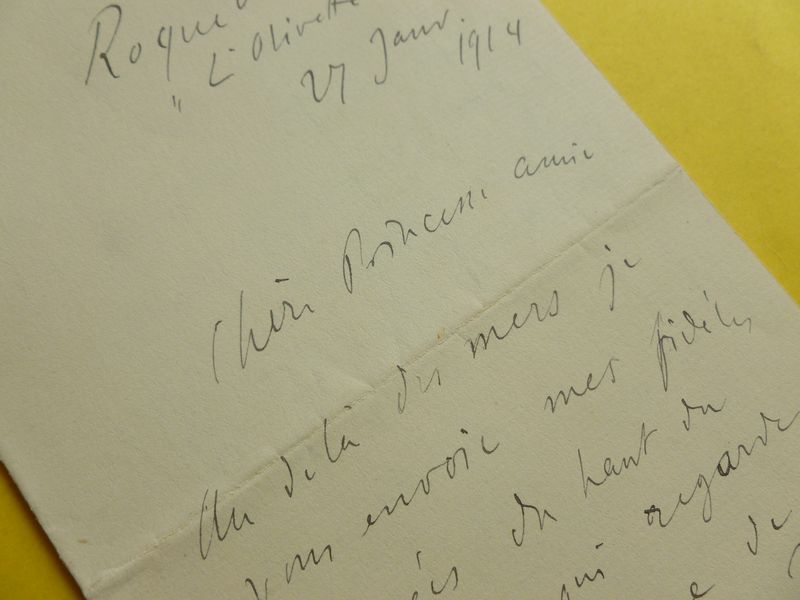 "L'Olivette
27 Janv. 1914
Chère Princesse amie
Au delà des mers je
vous envoie mes fidèles
du haut du
qui regarde
de